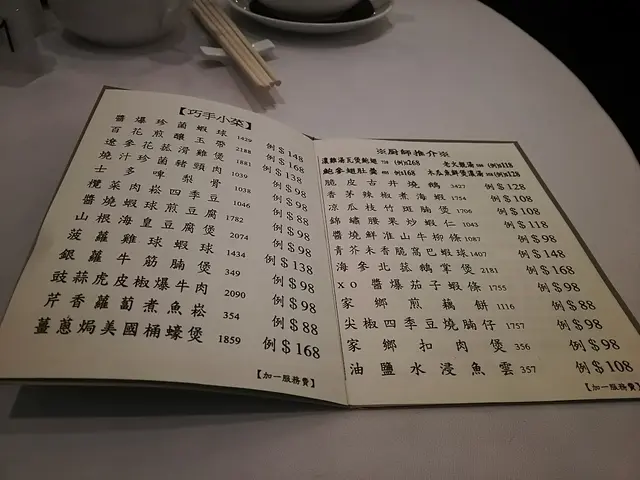 【巧手小菜】
醬爆珍菌蝦球 1429 例$148
百花煎釀玉帶 2188 例$168
遼參花菇滑雞煲 1881 例$138
燒汁珍菌豬頸肉 1039 例$98
士多啤梨骨 1038 例$98
欖菜肉崧四季豆 1046 例$88
醬燒蝦球煎豆腐 1782 例$98
山根海皇豆腐煲 2074 例$98
菠蘿雞球蝦球 1434 例$138
銀蘿牛筋腩煲 349 例$98
豉蒜虎皮椒爆牛肉 2090 例$98
芹香蘿蔔煮魚崧 354 例$88
薑蔥焗美國桶蠔煲 1859 例$168
【加一服務費】
※廚師推介※
濃雞湯瓦煲鮑翅 (例)$268 老火靚湯 (例)$118
鮑參翅肚羹 (例)$168 木瓜魚鮮煲濃湯 (例)$128
脆皮古井燒鵝 3427 例$128
香茅辣椒煮海蝦 1754 例$108
涼瓜枝竹斑腩煲 1706 例$108
錦繡腰果炒蝦仁 1043 例$118
醬燒鮮淮山牛柳條 1087 例$98
青芥末香脆窩巴蝦球 1407 例$148
海參北菇鵝掌煲 2181 例$168
xo醬爆茄子蝦條 1755 例$98
家鄉煎藕餅 1116 例$88
尖椒四季豆燒腩仔 1757 例$98
家鄉扣肉煲 356 例$98
油鹽水浸魚雲 357 例$108
【加一服務費】